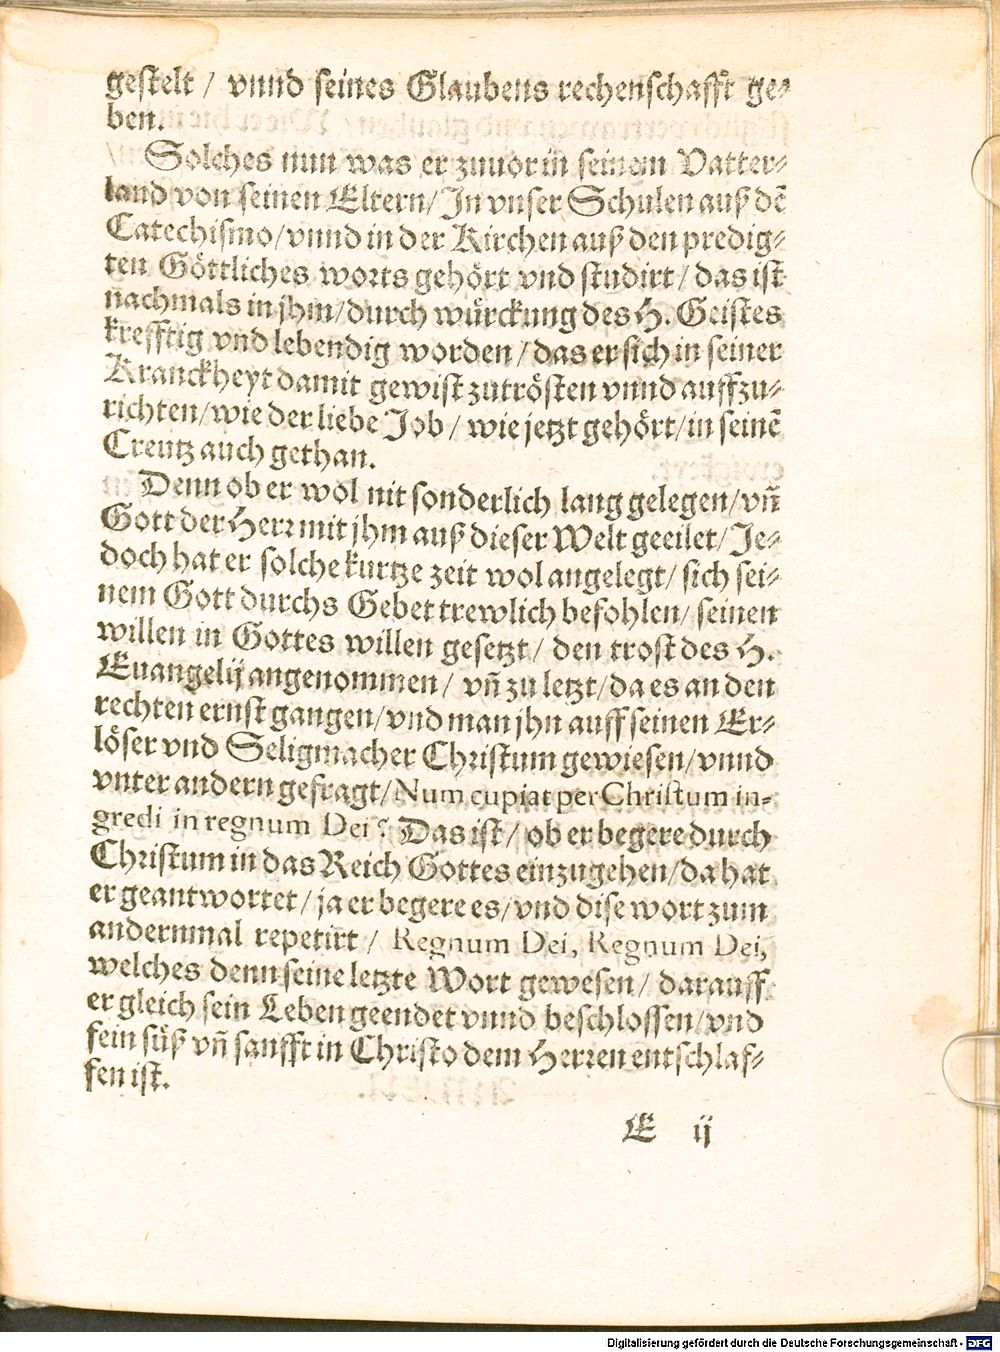 gestelt / vnnd seines Glaubens rechenschafft ge-
ben.
Solches nun was er zuuor in seinem Vatter-
land von seinen Eltern / In vnser Schulen auß dẽ
Catechismo / vnnd in der Kirchen auß den predig-
ten Göttliches worts gehört vnd studirt / das ist
nachmals in jhm / durch würckung des H. Geistes
krefftig vnd lebendig worden / das er sich in seiner
Kranckheyt damit gewist zutrösten vnnd auffzu-
richten / wie der liebe Job / wie jetzt gehört / in seinẽ
Creutz auch gethan.
Denn ob er wol nit sonderlich lang gelegen / vñ
Gott der Herr mit jhm auß dieser Welt geeilet / Je-
doch hat er solche kurtze zeit wol angelegt / sich sei-
nem Gott durchs Gebet trewlich befohlen / seinen
willen in Gottes willen gesetzt / den trost des H.
Euangelij angenommen / vñ zu letzt / da es an den
rechten ernst gangen / vnd man jhn auff seinen Er-
löser vnd Seligmacher Christum gewiesen / vnnd
vnter andern gefragt / Num cupiat per Christum in-
gredi in regnum Dei? Das ist / ob er begere durch
Christum in das Reich Gottes einzugehen / da hat
er geantwortet / ja er begere es / vnd dise wort zum
andernmal repetirt / Regnum Dei, Regnum Dei,
welches denn seine letzte Wort gewesen / darauff
er gleich sein Leben geendet vnnd beschlossen / vnd
fein süß vñ sanfft in Christo dem Herren entschlaf-
fen ist.
E ij
Digitalisierung gefördert durch die Deutsche Forschungsgemeinschaft - DFG